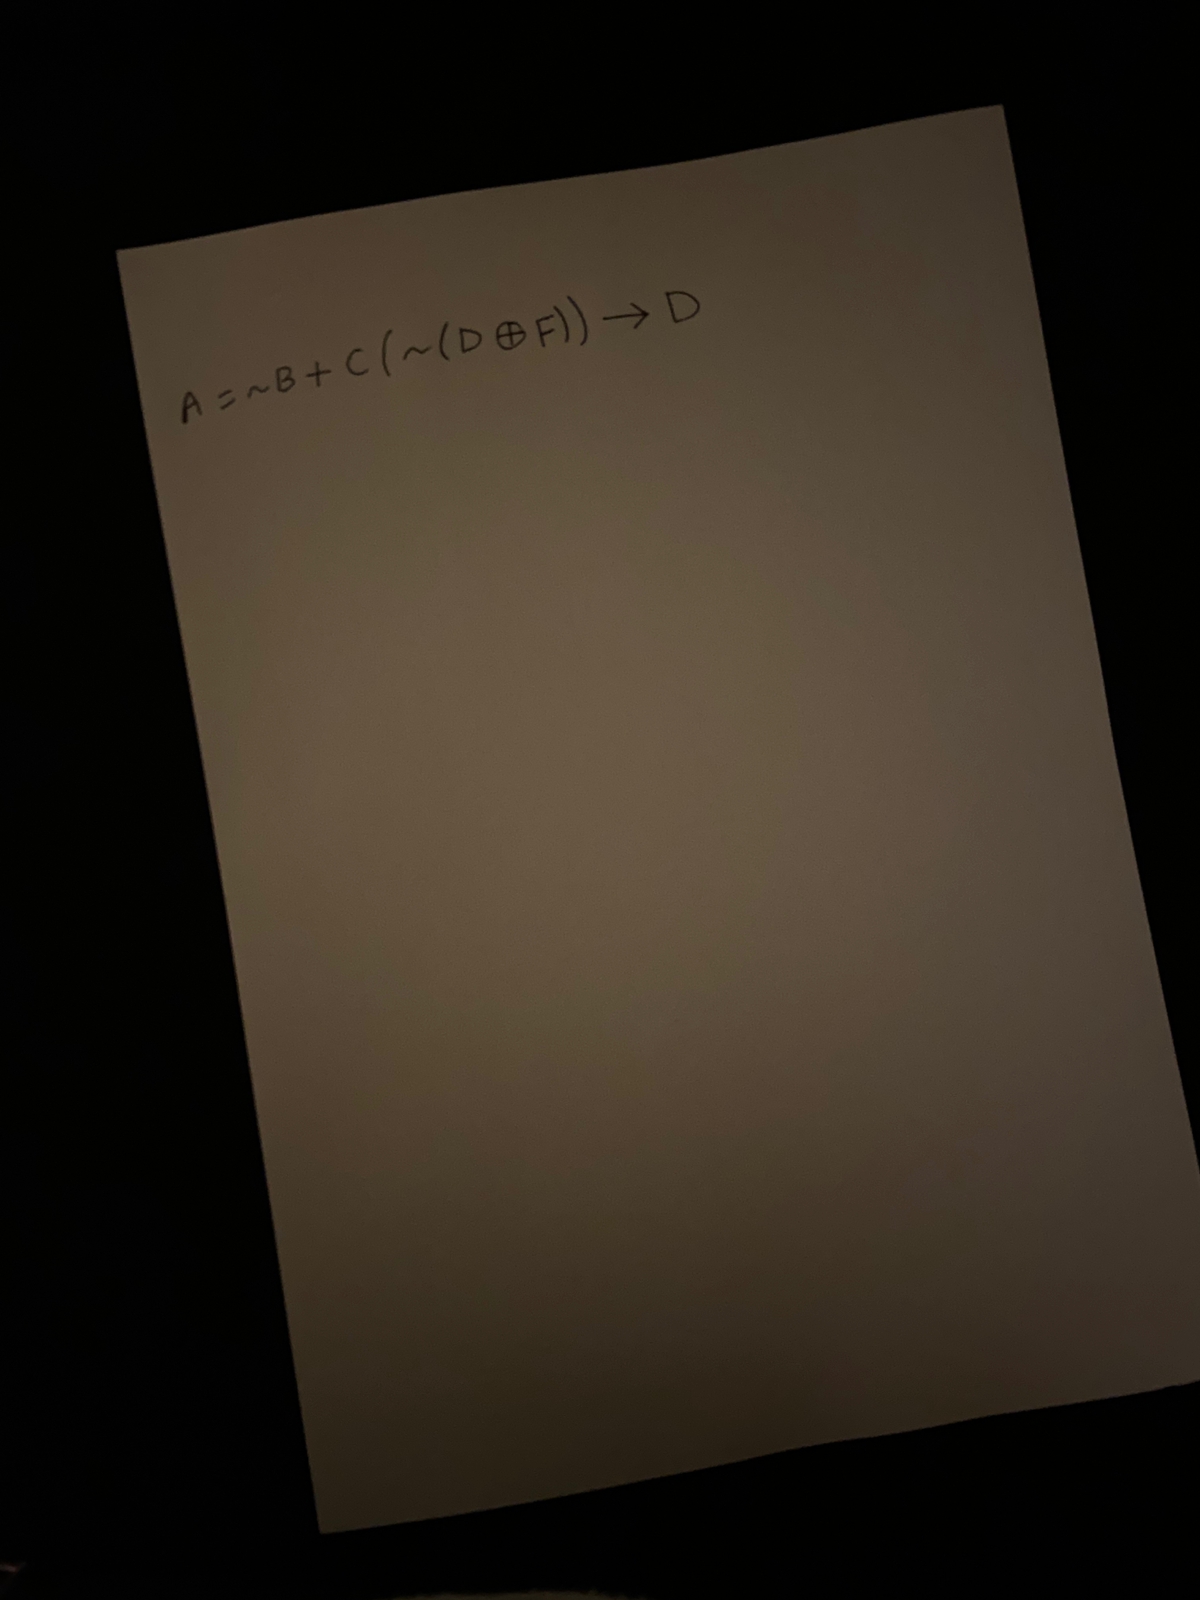 A = ~B + C (~(D ⊕ F)) → D